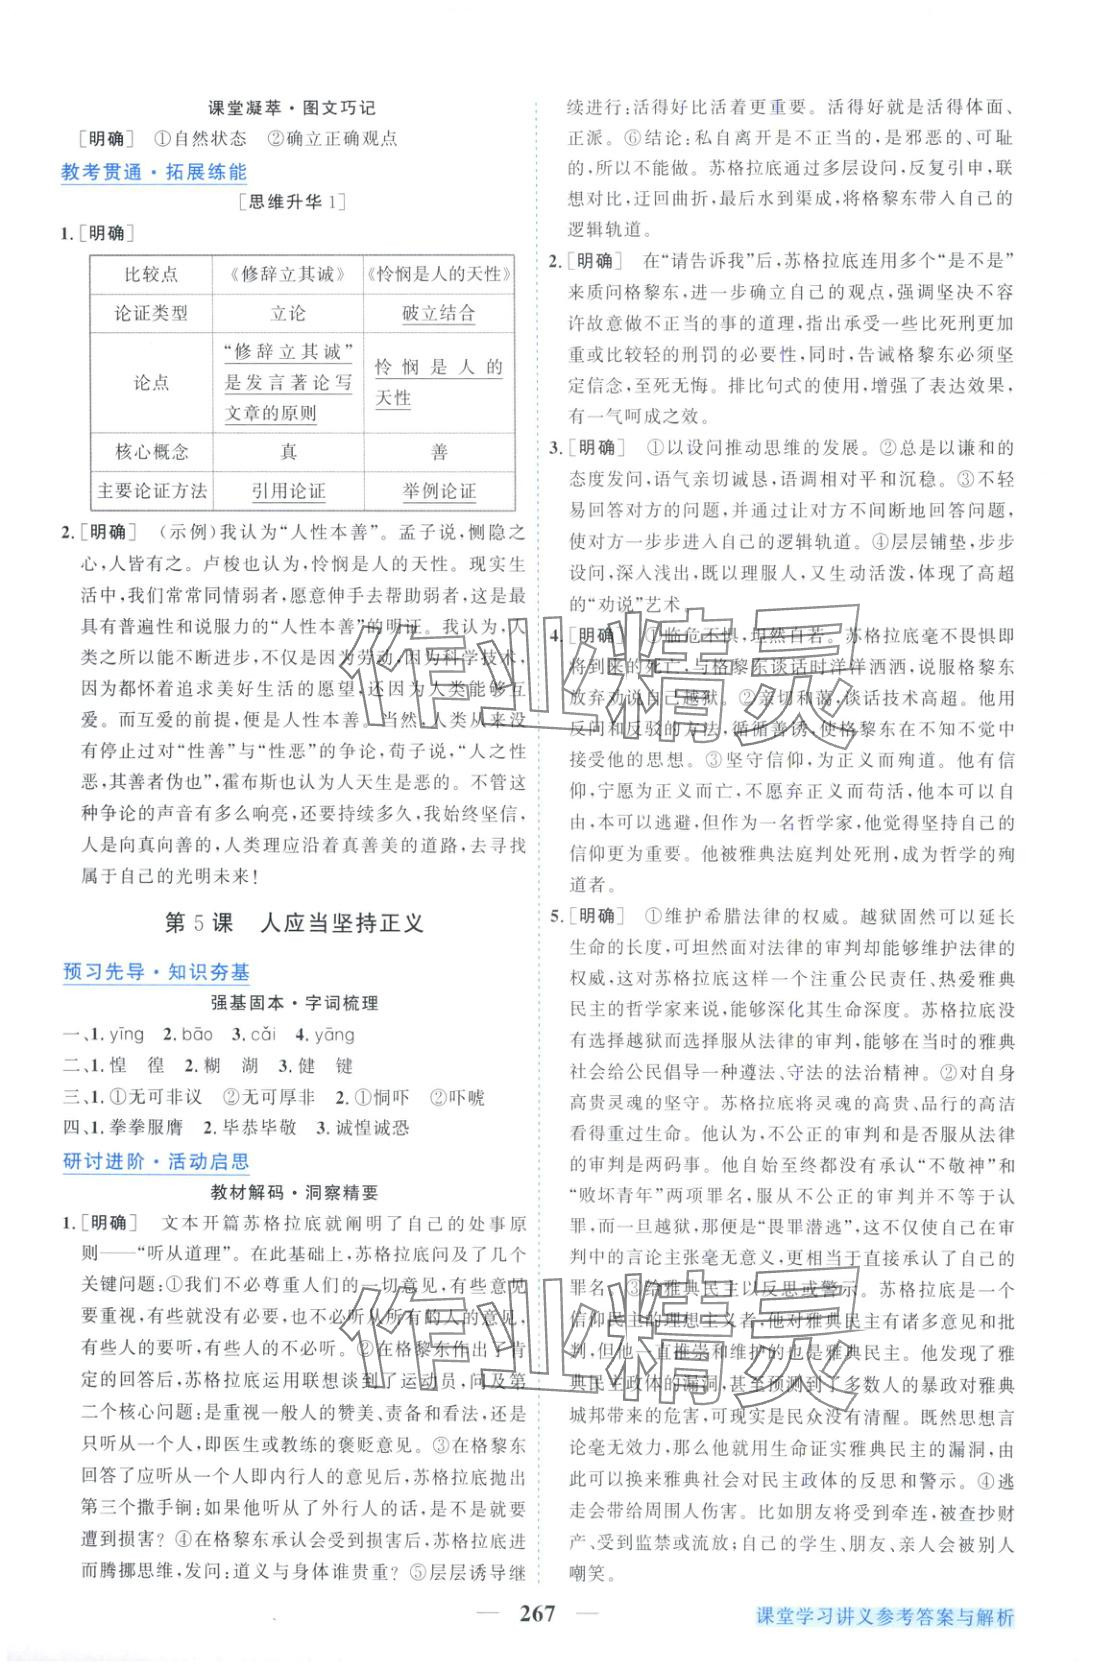 课堂凝萃·图文巧记
[明确]　①自然状态　②确立正确观点
教考贯通·拓展练能
[思维升华1]
1.[明确]
比较点　《修辞立其诚》　《怜悯是人的天性》
论证类型　立论　破立结合
论点　“修辞立其诚”是发言著论写文章的原则　怜悯是人的天性
核心概念　真　善
主要论证方法　引用论证　举例论证
2.[明确]　(示例)我认为“人性本善”。孟子说,恻隐之
心,人皆有之。卢梭也认为,怜悯是人的天性。现实生
活中,我们常常同情弱者,愿意伸手去帮助弱者,这是最
具有普遍性和说服力的“人性本善”的明证。我认为,人
类之所以能不断进步,不仅是因为劳动,因为科学技术,
因为都怀着追求美好生活的愿望,还因为人类能够互
爱。而互爱的前提,便是人性本善。当然,人类从来没
有停止过对“性善”与“性恶”的争论,荀子说,“人之性
恶,其善者伪也”,霍布斯也认为人天生是恶的。不管这
种争论的声音有多么响亮,还要持续多久,我始终坚信,
人是向真向善的,人类理应沿着真善美的道路,去寻找
属于自己的光明未来!
第5课　人应当坚持正义
预习先导·知识夯基
强基固本·字词梳理
一、1. yīng　2. bāo　3. cǎi　4. yāng
二、1.惶　徨　2.糊　湖　3.健　键
三、1.①无可非议　②无可厚非　2.①恫吓　②吓唬
四、1.拳拳服膺　2.毕恭毕敬　3.诚惶诚恐
研讨进阶·活动启思
教材解码·洞察精要
1.[明确]　文本开篇苏格拉底就阐明了自己的处事原
则——“听从道理”。在此基础上,苏格拉底问及了几个
关键问题:①我们不必尊重人们的一切意见,有些意见
要重视,有些就没有必要,也不必听从所有的人的意见,
有些人的要听,有些人的不必听。②在格黎东作出了肯
定的回答后,苏格拉底运用联想谈到了运动员,问及第
二个核心问题:是重视一般人的赞美、责备和看法,还是
只听从一个人,即医生或教练的褒贬意见。③在格黎东
回答了应听从一个人即内行人的意见后,苏格拉底抛出
第三个撒手锏:如果他听从了外行人的话,是不是就要
遭到损害?④在格黎东承认会受到损害后,苏格拉底进
而腾挪思维,发问:道义与身体谁贵重?⑤层层诱导继
续进行:活得好比活着更重要。活得好就是活得体面、
正派。⑥结论:私自离开是不正当的,是邪恶的、可耻
的,所以不能做。苏格拉底通过多层设问,反复引申,联
想对比,迂回曲折,最后水到渠成,将格黎东带入自己的
逻辑轨道。
2.[明确]　在“请告诉我”后,苏格拉底连用多个“是不是”
来质问格黎东,进一步确立自己的观点,强调坚决不容
许故意做不正当的事的道理,指出承受一些比死刑更加
重或比较轻的刑罚的必要性,同时,告诫格黎东必须坚
定信念,至死无悔。排比句式的使用,增强了表达效果,
有一气呵成之效。
3.[明确]　①以设问推动思维的发展。②总是以谦和的
态度发问,语气亲切诚恳,语调相对平和沉稳。③不轻
易回答对方的问题,并通过让对方不间断地回答问题,
使对方一步步进入自己的逻辑轨道。④层层铺垫,步步
设问,深入浅出,既以理服人,又生动活泼,体现了高超
的“劝说”艺术。
4.[明确]　①临危不惧,坦然自若。苏格拉底毫不畏惧即
将到来的死亡,与格黎东谈话时洋洋洒洒,说服格黎东
放弃劝说自己越狱。②亲切和蔼,谈话技术高超。他用
反问和反驳的方法,循循善诱,使格黎东在不知不觉中
接受他的思想。③坚守信仰,为正义而殉道。他有信
仰,宁愿为正义而亡,不愿弃正义而苟活,他本可以自
由,本可以逃避,但作为一名哲学家,他觉得坚持自己的
信仰更为重要。他被雅典法庭判处死刑,成为哲学的殉
道者。
5.[明确]　①维护希腊法律的权威。越狱固然可以延长
生命的长度,可坦然面对法律的审判却能够维护法律的
权威,这对苏格拉底这样一个注重公民责任、热爱雅典
民主的哲学家来说,能够深化其生命深度。苏格拉底没
有选择越狱而选择服从法律的审判,能够在当时的雅典
社会给公民倡导一种遵法、守法的法治精神。②对自身
高贵灵魂的坚守。苏格拉底将灵魂的高贵、品行的高洁
看得重过生命。他认为,不公正的审判和是否服从法律
的审判是两码事。他自始至终都没有承认“不敬神”和
“败坏青年”两项罪名,服从不公正的审判并不等于认
罪,而一旦越狱,那便是“畏罪潜逃”,这不仅使自己在审
判中的言论主张毫无意义,更相当于直接承认了自己的
罪名。③给雅典民主以反思或警示。苏格拉底是一个
信仰民主的理想主义者,他对雅典民主有诸多意见和批
判,但他一直推崇和维护的也是雅典民主。他发现了雅
典民主政体的漏洞,甚至预测到了多数人的暴政对雅典
城邦带来的危害,可现实是民众没有清醒。既然思想言
论毫无效力,那么他就用生命证实雅典民主的漏洞,由
此可以换来雅典社会对民主政体的反思和警示。④逃
走会带给周围人伤害。比如朋友将受到牵连,被查抄财
产、受到监禁或流放;自己的学生、朋友、亲人会被别人
嘲笑。
作业精灵
作业精灵
267
课堂学习讲义参考答案与解析